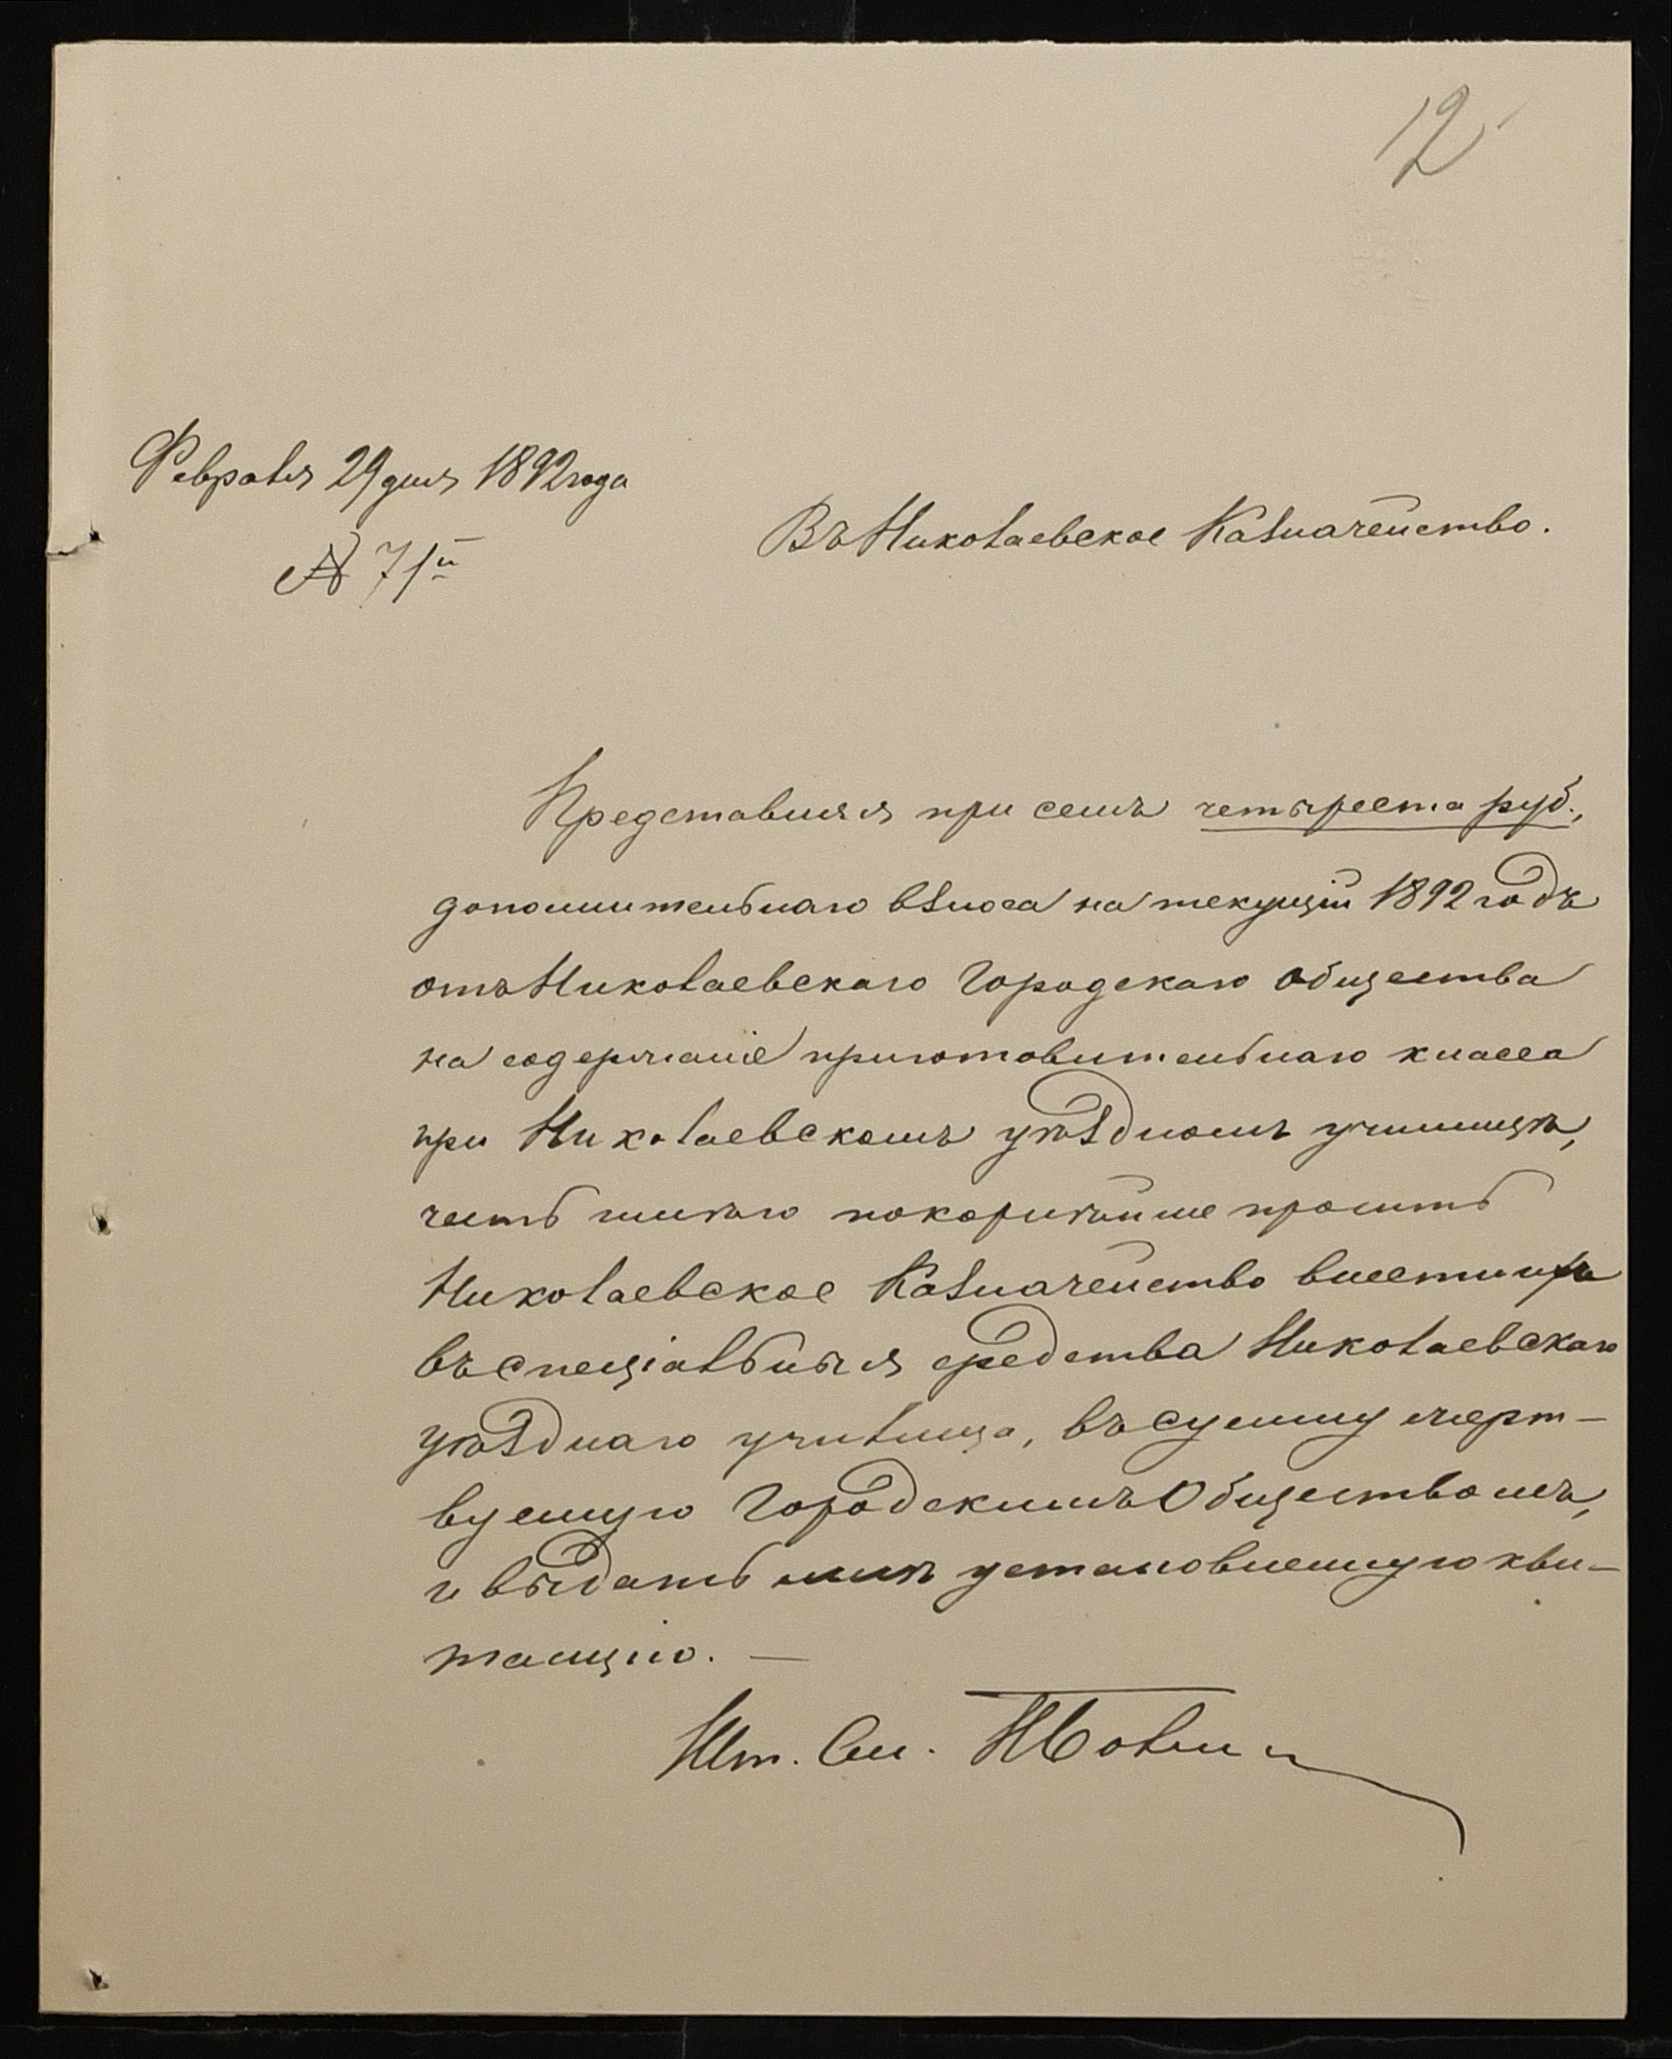 12
Февраля 29 дня 1892 года
№ 71й
Въ Николаевское Казначейство.
Представляя при семъ четыреста руб.,
дополнительнаго взноса на текущій 1892 годъ
отъ Николаевскаго Городскаго Общества
на содержаніе приготовительнаго класса
при Николаевскомъ уѣздномъ училищѣ,
честь имѣю покорнѣйше просить
Николаевское Казначейство внести ихъ
въ спеціальныя средства Николаевскаго
уѣзднаго училища, въ сумму жерт-
вуемую Городскимъ Обществомъ,
и выдать мнѣ установленную кви-
танцію. —
Шт. См.